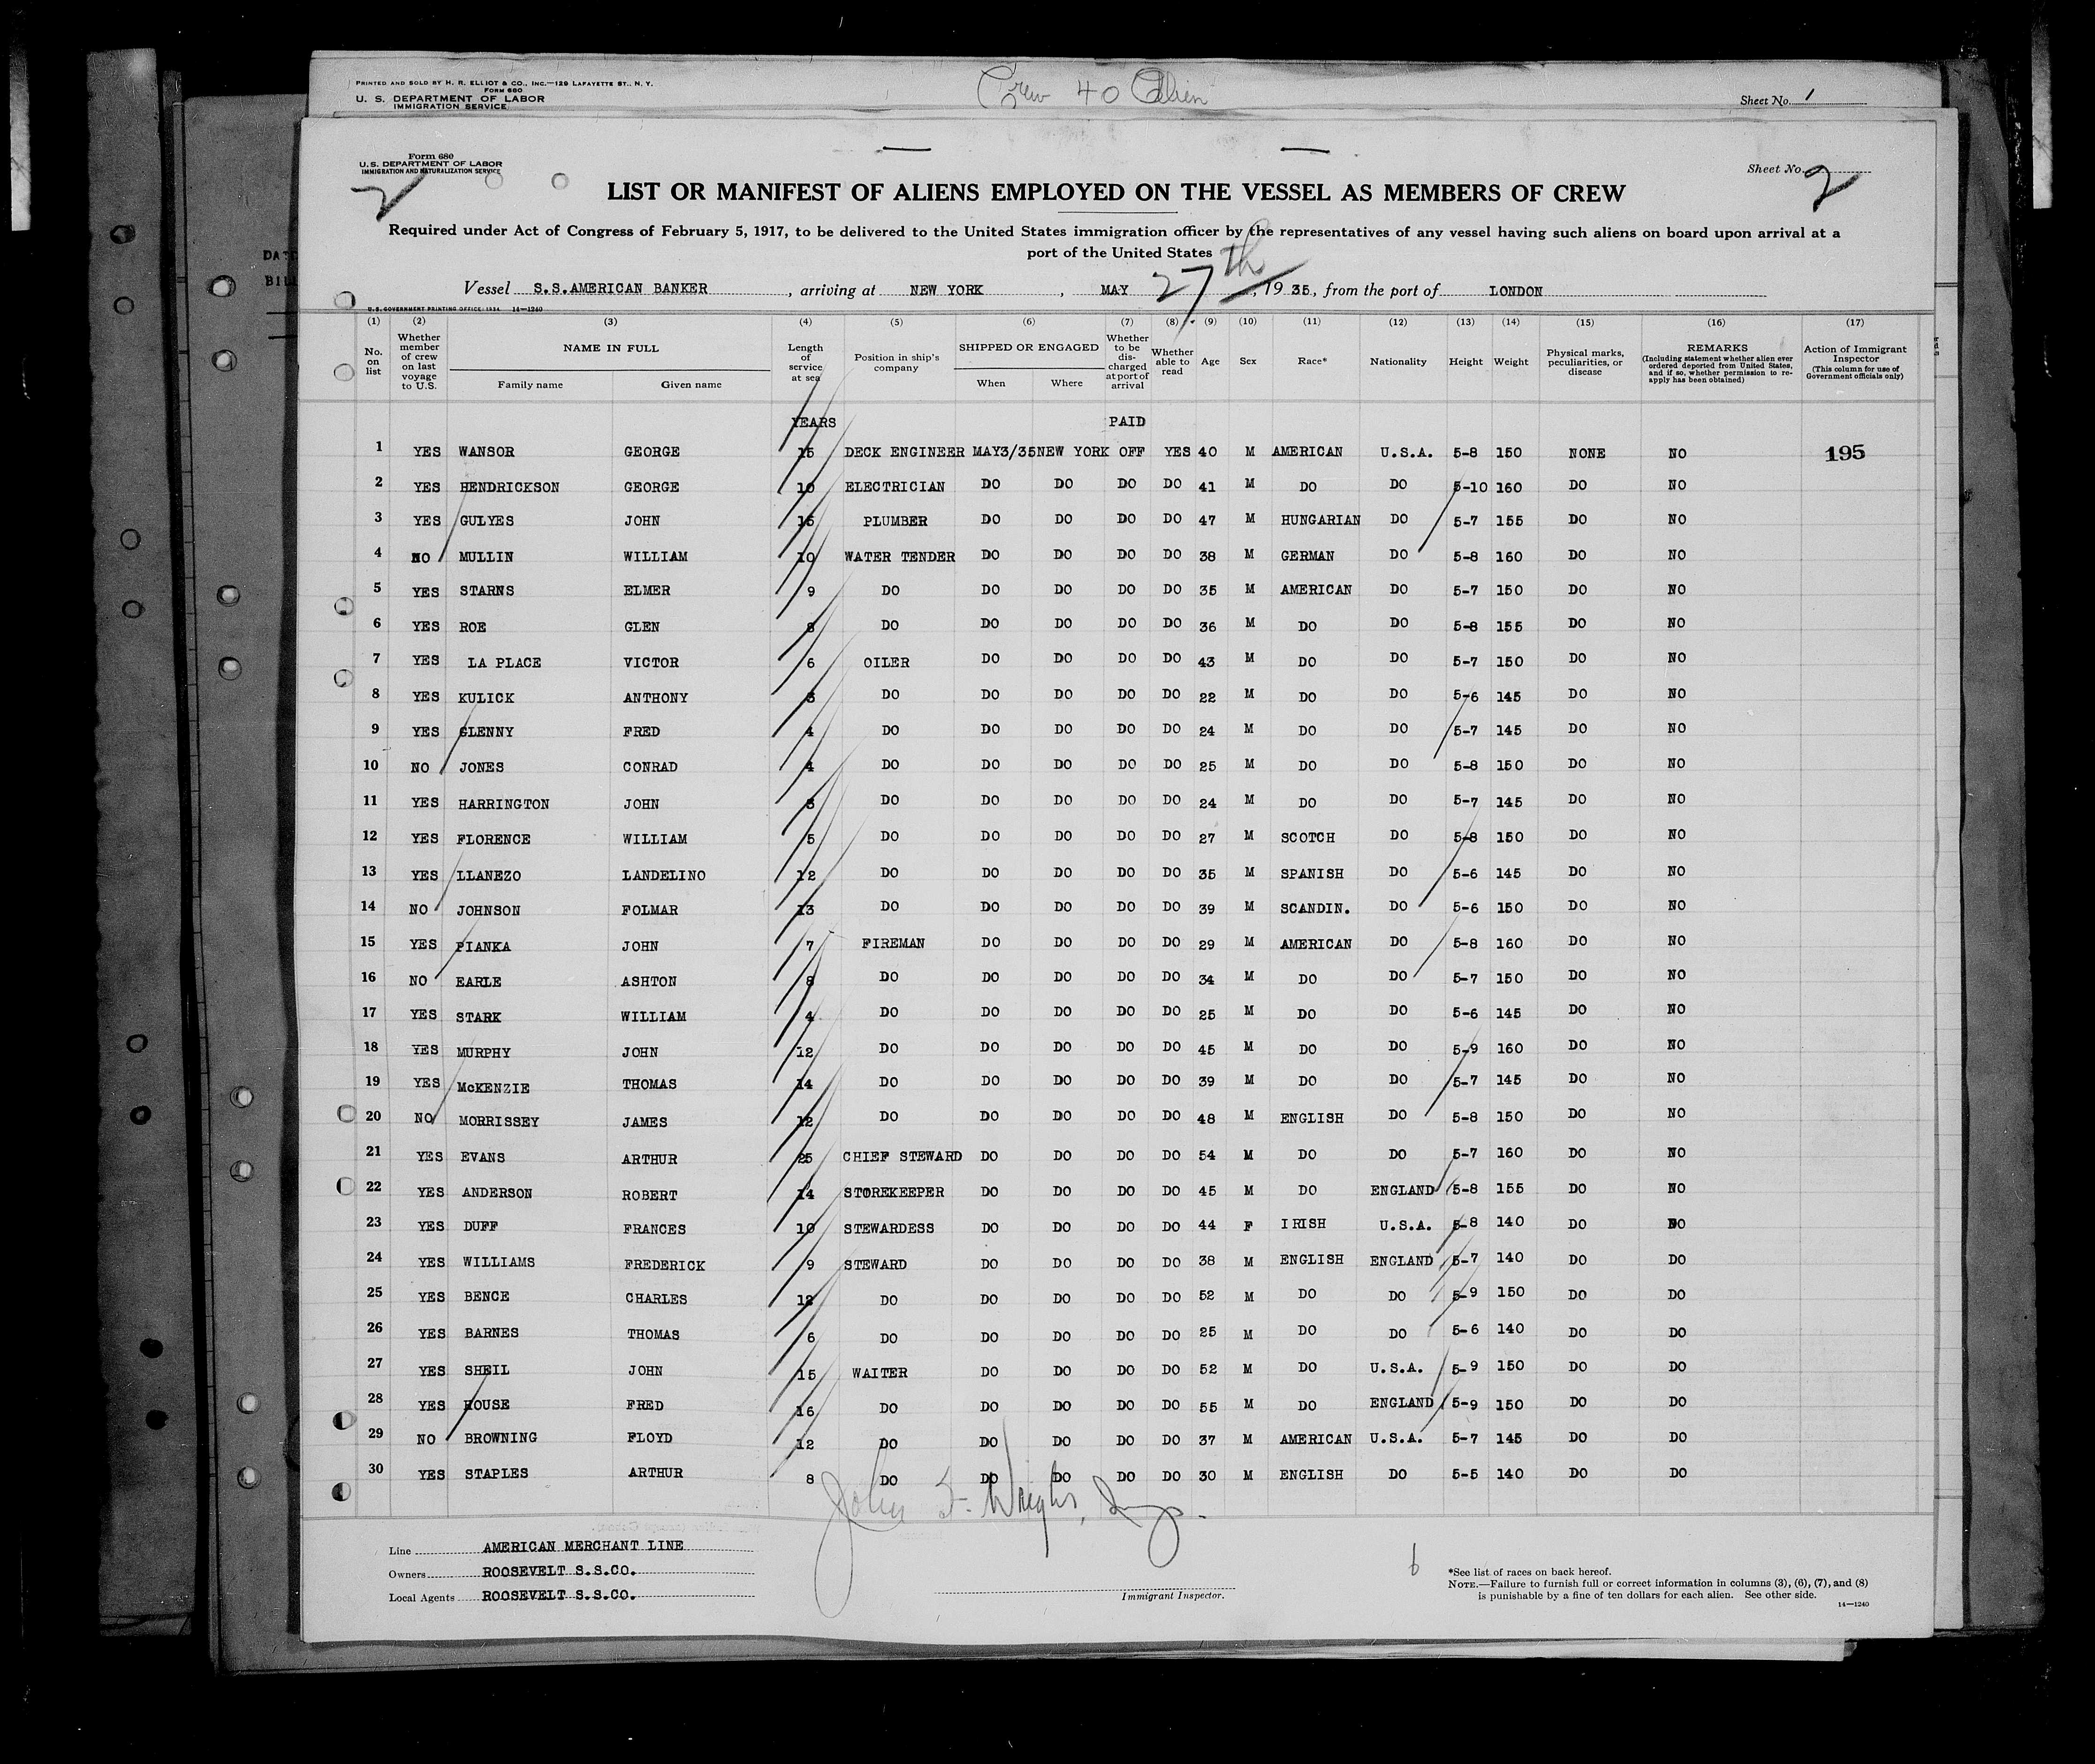 PRINTED AND SOLD BY H. R. ELLIOT & CO., INC.—129 LAFAYETTE ST., N. Y.
FORM 680
U. S. DEPARTMENT OF LABOR
IMMIGRATION SERVICE
Crew 40 Alien
Sheet No. 1
Form 680
U. S. DEPARTMENT OF LABOR
IMMIGRATION AND NATURALIZATION SERVICE
2
Sheet No. 2
LIST OR MANIFEST OF ALIENS EMPLOYED ON THE VESSEL AS MEMBERS OF CREW
Required under Act of Congress of February 5, 1917, to be delivered to the United States immigration officer by the representatives of any vessel having such aliens on board upon arrival at a
port of the United States
Vessel S.S.AMERICAN BANKER, arriving at NEW YORK, MAY 27th, 1935, from the port of LONDON
U.S. GOVERNMENT PRINTING OFFICE: 1934 14—1240
(1) (2) (3) (4) (5) (6) (7) (8) (9) (10) (11) (12) (13) (14) (15) (16) (17)
No. on list
Whether member of crew on last voyage to U.S.
NAME IN FULL
Family name Given name
Length of service at sea
Position in ship's company
SHIPPED OR ENGAGED
When Where
Whether to be discharged at port of arrival
Whether able to read
Age
Sex
Race*
Nationality
Height
Weight
Physical marks, peculiarities, or disease
REMARKS
(Including statement whether alien ever ordered deported from United States, and if so, whether permission to reapply has been obtained)
Action of Immigrant Inspector
(This column for use of Government officials only)
YEARS PAID
1 YES WANSOR GEORGE 15 DECK ENGINEER MAY3/35 NEW YORK OFF YES 40 M AMERICAN U.S.A. 5-8 150 NONE NO 195
2 YES HENDRICKSON GEORGE 10 ELECTRICIAN DO DO DO DO 41 M DO DO 5-10 160 DO NO
3 YES GULYES JOHN 15 PLUMBER DO DO DO DO 47 M HUNGARIAN DO 5-7 155 DO NO
4 NO MULLIN WILLIAM 10 WATER TENDER DO DO DO DO 38 M GERMAN DO 5-8 160 DO NO
5 YES STARNS ELMER 9 DO DO DO DO DO 35 M AMERICAN DO 5-7 150 DO NO
6 YES ROE GLEN 8 DO DO DO DO DO 36 M DO DO 5-8 155 DO NO
7 YES LA PLACE VICTOR 6 OILER DO DO DO DO 43 M DO DO 5-7 150 DO NO
8 YES KULICK ANTHONY DO DO DO DO DO 22 M DO DO 5-6 145 DO NO
9 YES GLENNY FRED 4 DO DO DO DO DO 24 M DO DO 5-7 145 DO NO
10 NO JONES CONRAD 4 DO DO DO DO DO 25 M DO DO 5-8 150 DO NO
11 YES HARRINGTON JOHN DO DO DO DO DO 24 M DO DO 5-7 145 DO NO
12 YES FLORENCE WILLIAM 5 DO DO DO DO DO 27 M SCOTCH DO 5-8 150 DO NO
13 YES LLANEZO LANDELINO 12 DO DO DO DO DO 35 M SPANISH DO 5-6 145 DO NO
14 NO JOHNSON FOLMAR 13 DO DO DO DO DO 39 M SCANDIN. DO 5-6 150 DO NO
15 YES PIANKA JOHN 7 FIREMAN DO DO DO DO 29 M AMERICAN DO 5-8 160 DO NO
16 NO EARLE ASHTON 8 DO DO DO DO DO 34 M DO DO 5-7 150 DO NO
17 YES STARK WILLIAM 4 DO DO DO DO DO 25 M DO DO 5-6 145 DO NO
18 YES MURPHY JOHN 12 DO DO DO DO DO 45 M DO DO 5-9 160 DO NO
19 YES McKENZIE THOMAS 14 DO DO DO DO DO 39 M DO DO 5-7 145 DO NO
20 NO MORRISSEY JAMES 12 DO DO DO DO DO 48 M ENGLISH DO 5-8 150 DO NO
21 YES EVANS ARTHUR 25 CHIEF STEWARD DO DO DO DO 54 M DO DO 5-7 160 DO NO
22 YES ANDERSON ROBERT 14 STOREKEEPER DO DO DO DO 45 M DO ENGLAND 5-8 155 DO NO
23 YES DUFF FRANCES 10 STEWARDESS DO DO DO DO 44 F IRISH U.S.A. 5-8 140 DO NO
24 YES WILLIAMS FREDERICK 9 STEWARD DO DO DO DO 38 M ENGLISH ENGLAND 5-7 140 DO DO
25 YES BENCE CHARLES 12 DO DO DO DO DO 52 M DO DO 5-9 150 DO DO
26 YES BARNES THOMAS 6 DO DO DO DO DO 25 M DO DO 5-6 140 DO DO
27 YES SHEIL JOHN 15 WAITER DO DO DO DO 52 M DO U.S.A. 5-9 150 DO DO
28 YES ROUSE FRED 16 DO DO DO DO DO 55 M DO ENGLAND 5-9 150 DO DO
29 NO BROWNING FLOYD 12 DO DO DO DO DO 37 M AMERICAN U.S.A. 5-7 145 DO DO
30 YES STAPLES ARTHUR 8 DO DO DO DO DO 30 M ENGLISH DO 5-5 140 DO DO
John F. Wright, Insp.
Line AMERICAN MERCHANT LINE
Owners ROOSEVELT S.S.CO.
Local Agents ROOSEVELT S.S.CO.
Immigrant Inspector.
6
*See list of races on back hereof.
NOTE.—Failure to furnish full or correct information in columns (3), (6), (7), and (8)
is punishable by a fine of ten dollars for each alien. See other side.
14—1240